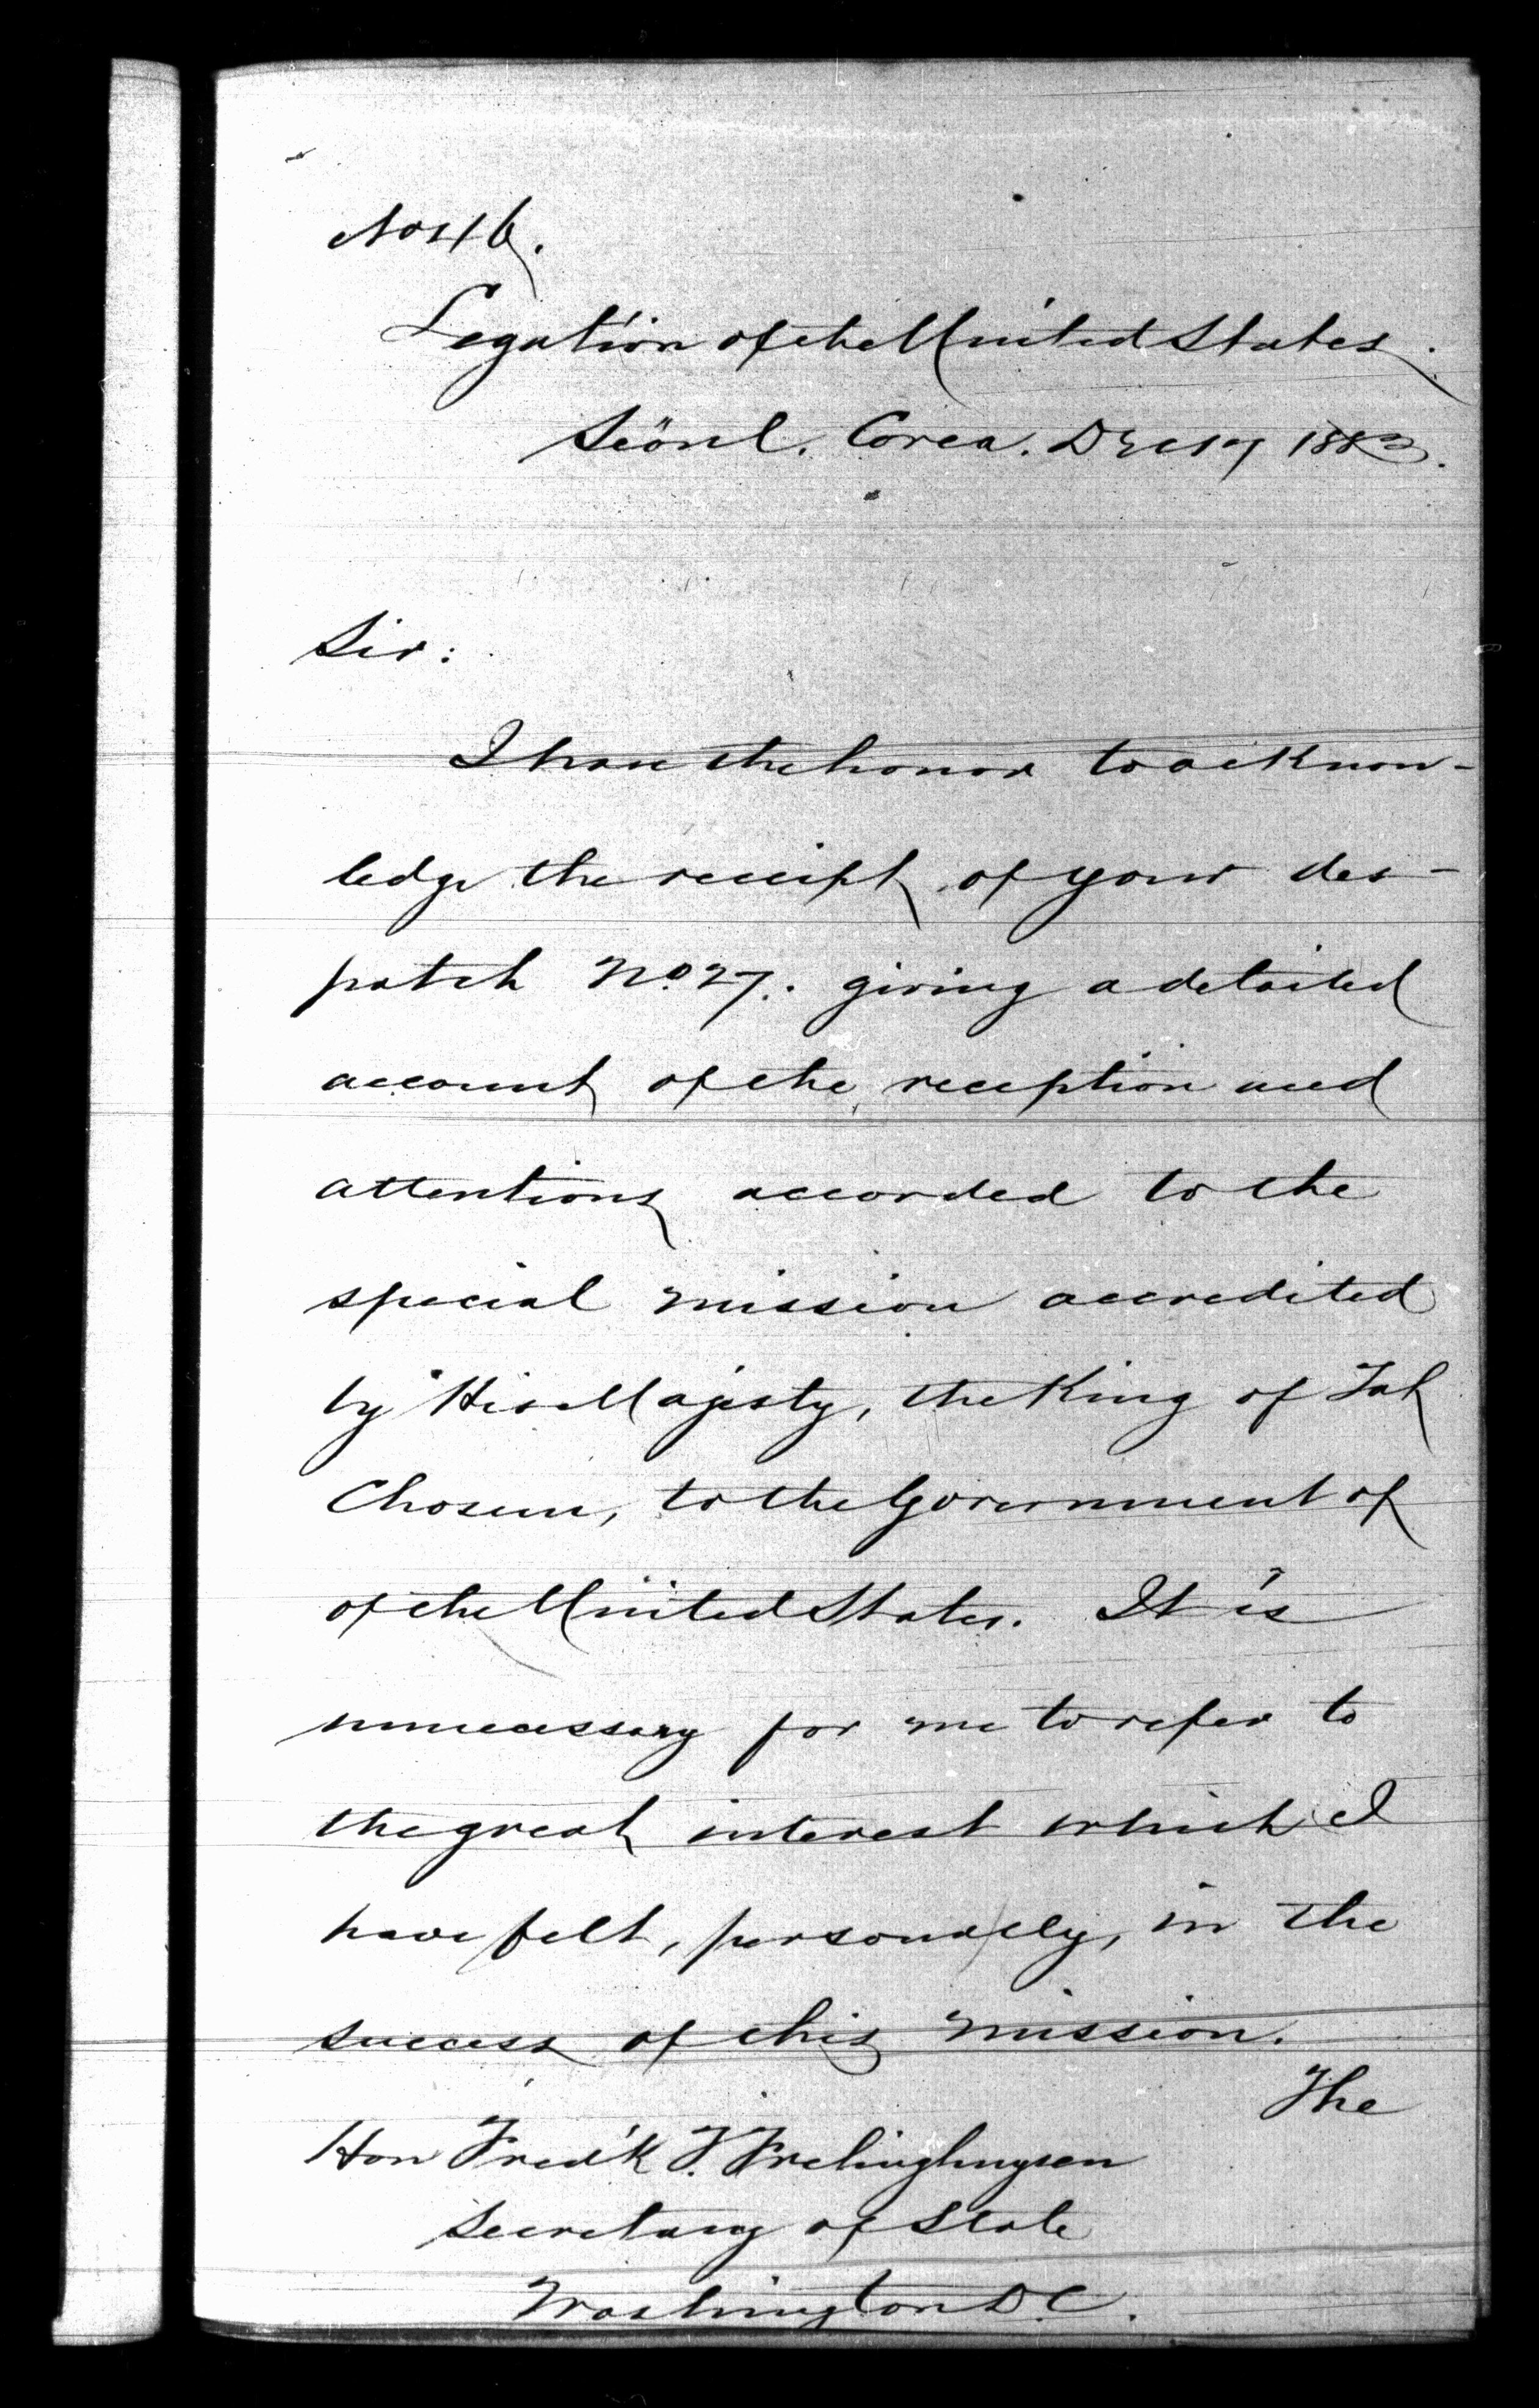 No 46.
Legation of the United States.
Seöul. Corea. Dec 17 1883.
Sir:
I have the honor to acknow-
ledge the receipt of your des-
patch No. 27. giving a detailed
account of the reception and
attentions accorded to the
special mission accredited
by His Majesty, the King of Tah
Chosun, to the Government of
of the United States. It is
unnecessary for me to refer to
the great interest which I
have felt, personally, in the
success of this mission.
The
Hon Fred'k T. Frelinghuysen
Secretary of State
Washington D.C.